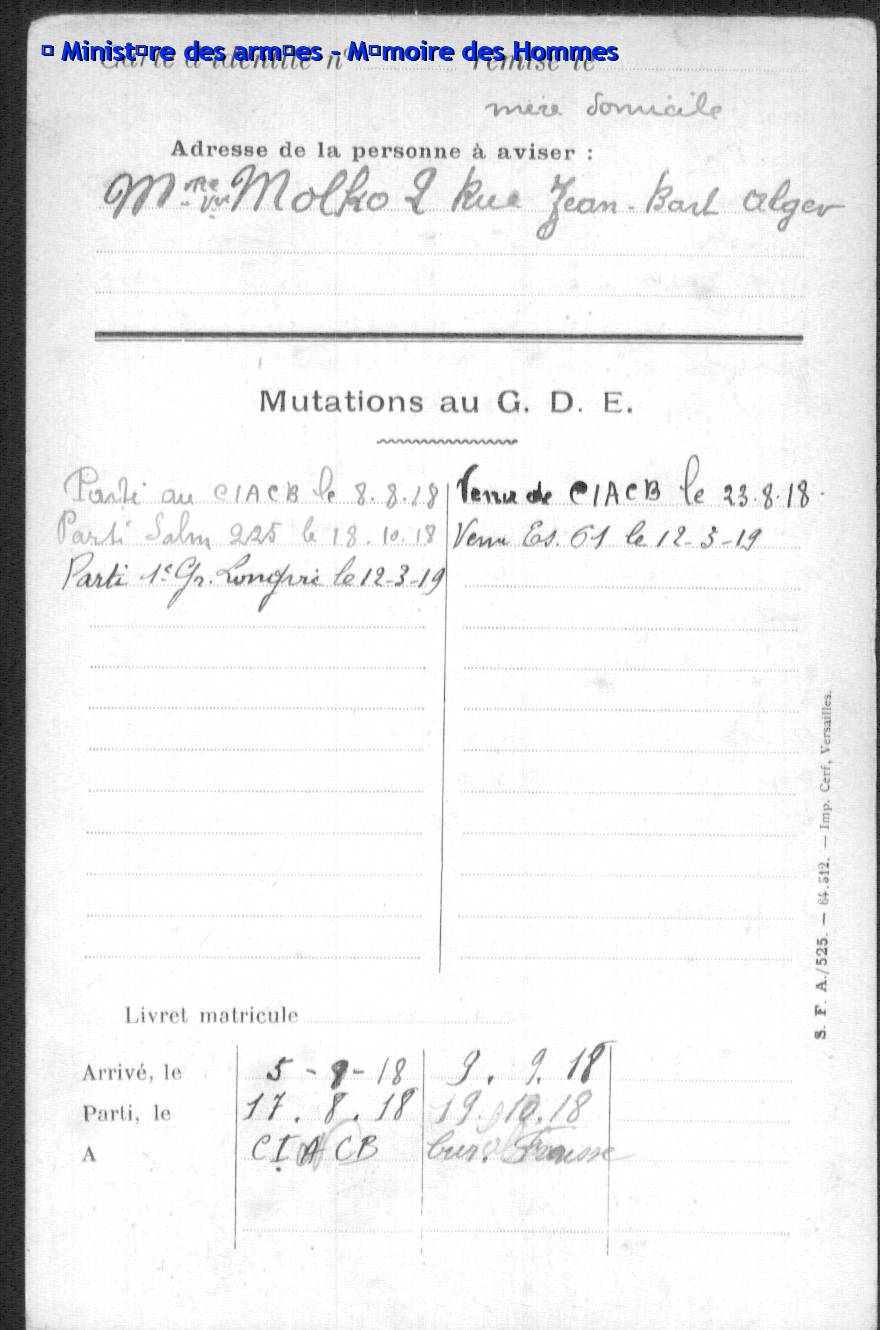 ▯ Minist▯re des arm▯es - M▯moire des Hommes
Carte d'identité n° remise le
mère domicile
Adresse de la personne à aviser :
Mme Vve Molko 2 Rue Jean-Bart Alger
Mutations au G. D. E.
Parti au CIACB le 8.8.18
Venu de CIACB le 23.8.18.
Parti Salm 225 le 18.10.18
Venu Es. 61 le 12-3-19
Parti 1e Gr. le 12-3-19
S. F. A./525. — 64.512. — Imp. Cerf, Versailles.
Livret matricule
Arrivé, le 5-8-18 9.9.18
Parti, le 17.8.18 19.10.18
A CIACB